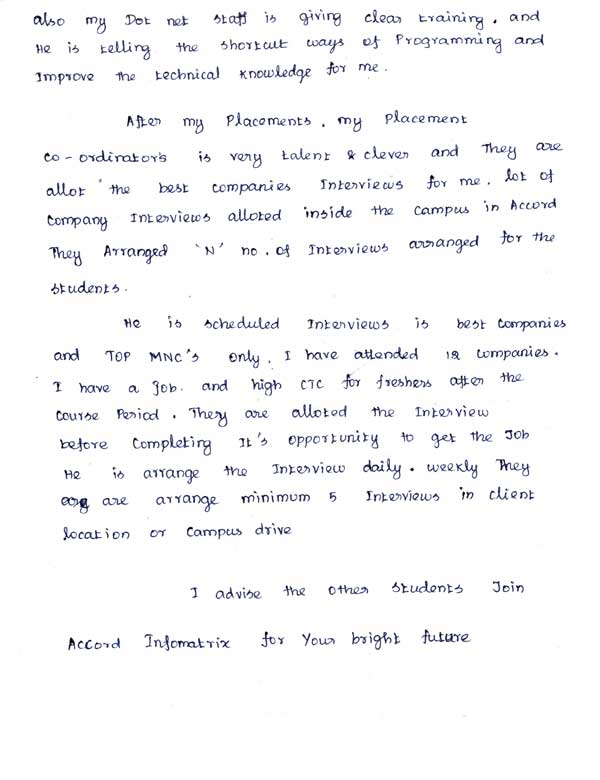 also my Dot net staff is giving clear training. and
He is telling the shortcut ways of Programming and
Improve the technical knowledge for me.
After my Placements. my Placement
co-ordinator's is very talent & clever and They are
allot the best companies Interviews for me. lot of
Company Interviews alloted inside the campus in Accord
They Arranged 'N' no. of Interviews arranged for the
students.
He is scheduled Interviews is best Companies
and TOP MNC's only. I have attended 12 companies.
I have a job. and high CTC for freshers after the
Course Period. They are alloted the Interview
before Completing It's opportunity to get the Job
He is arrange the Interview daily. weekly They
are arrange minimum 5 Interviews in client
location or Campus drive
I advise the other students Join
Accord Infomatrix for Your bright future